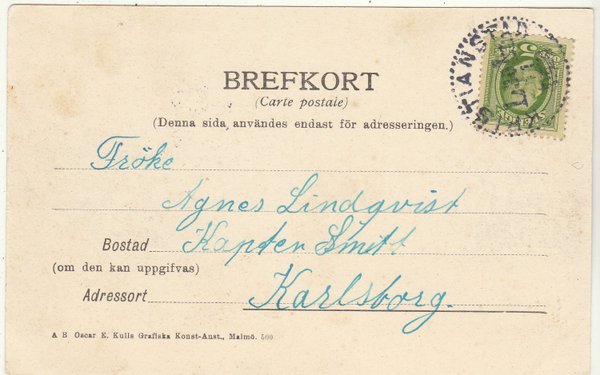 BREFKORT
(Carte postale)
(Denna sida användes endast för adresseringen.)
Fröke
Agnes Lindqvist
Bostad Kapten Smitt
(om den kan uppgifvas)
Adressort Karlsborg.
A B Oscar E. Kulls Grafiska Konst-Anst., Malmö. 500